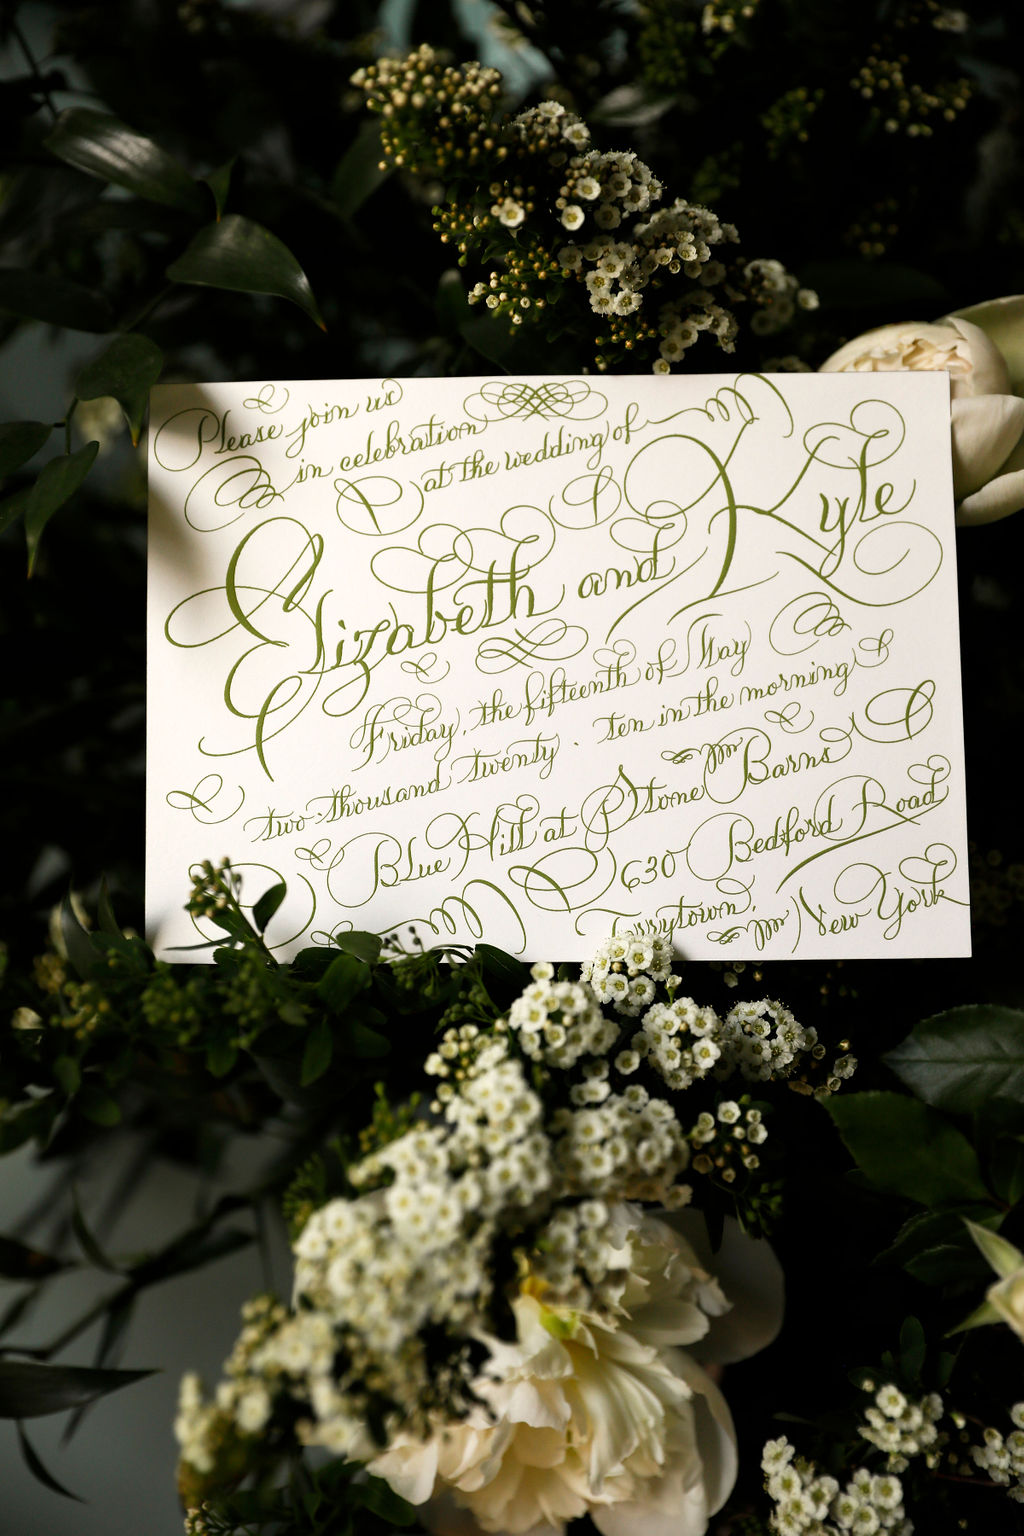 Please join us
in celebration
at the wedding of
Elizabeth and Kyle
Friday, the fifteenth of May
two thousand twenty · ten in the morning
Blue Hill at Stone Barns
630 Bedford Road
Tarrytown, New York